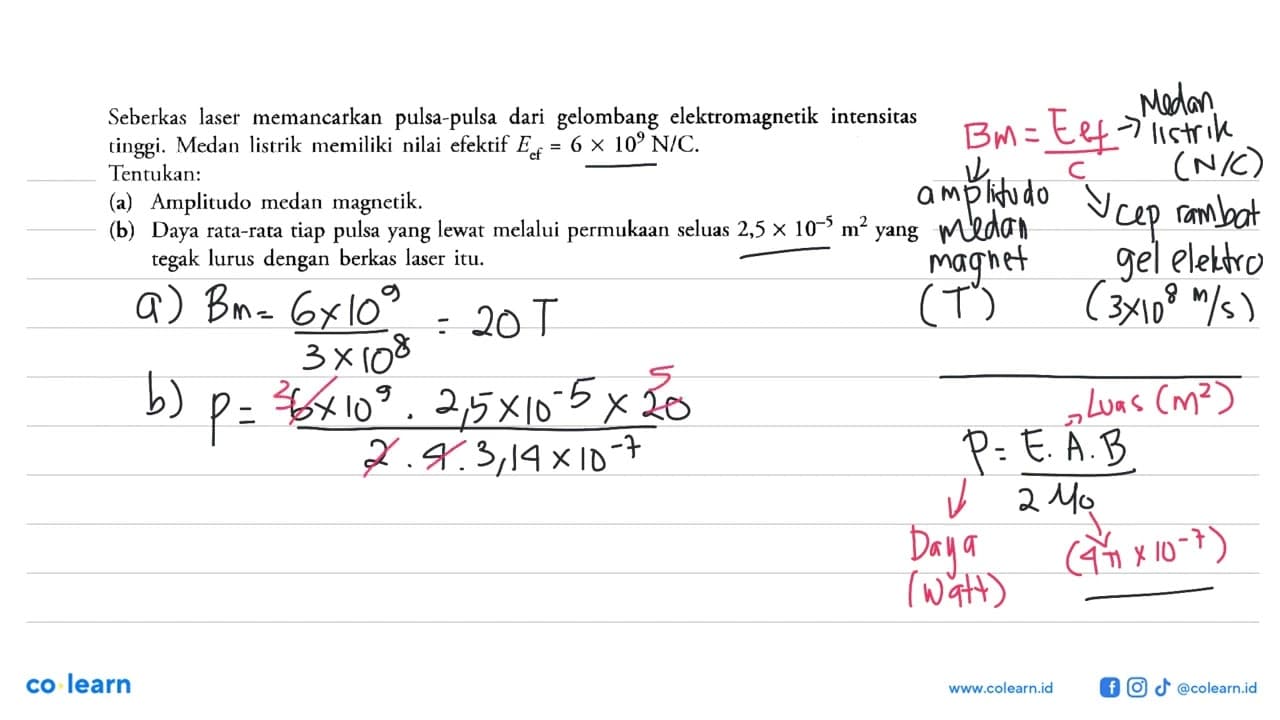 Seberkas laser memancarkan pulsa-pulsa dari gelombang elektromagnetik intensitas
tinggi. Medan listrik memiliki nilai efektif E_ef = 6 × 10⁹ N/C.
Tentukan:
(a) Amplitudo medan magnetik.
(b) Daya rata-rata tiap pulsa yang lewat melalui permukaan seluas 2,5 × 10⁻⁵ m² yang
tegak lurus dengan berkas laser itu.
Bm = Eef / c
→ Medan
listrik
(N/C)
amplitudo
medan
magnet
(T)
cep rambat
gel elektro
(3×10⁸ m/s)
a) Bm = 6×10⁹ / 3×10⁸ = 20 T
b) P = 6×10⁹ . 2,5×10⁻⁵ × 20 / 2 . 4 . 3,14×10⁻⁷
3
5
Luas (m²)
P = E.A.B / 2 μo
Daya
(Watt)
(4π × 10⁻⁷)
co learn
www.colearn.id
@colearn.id